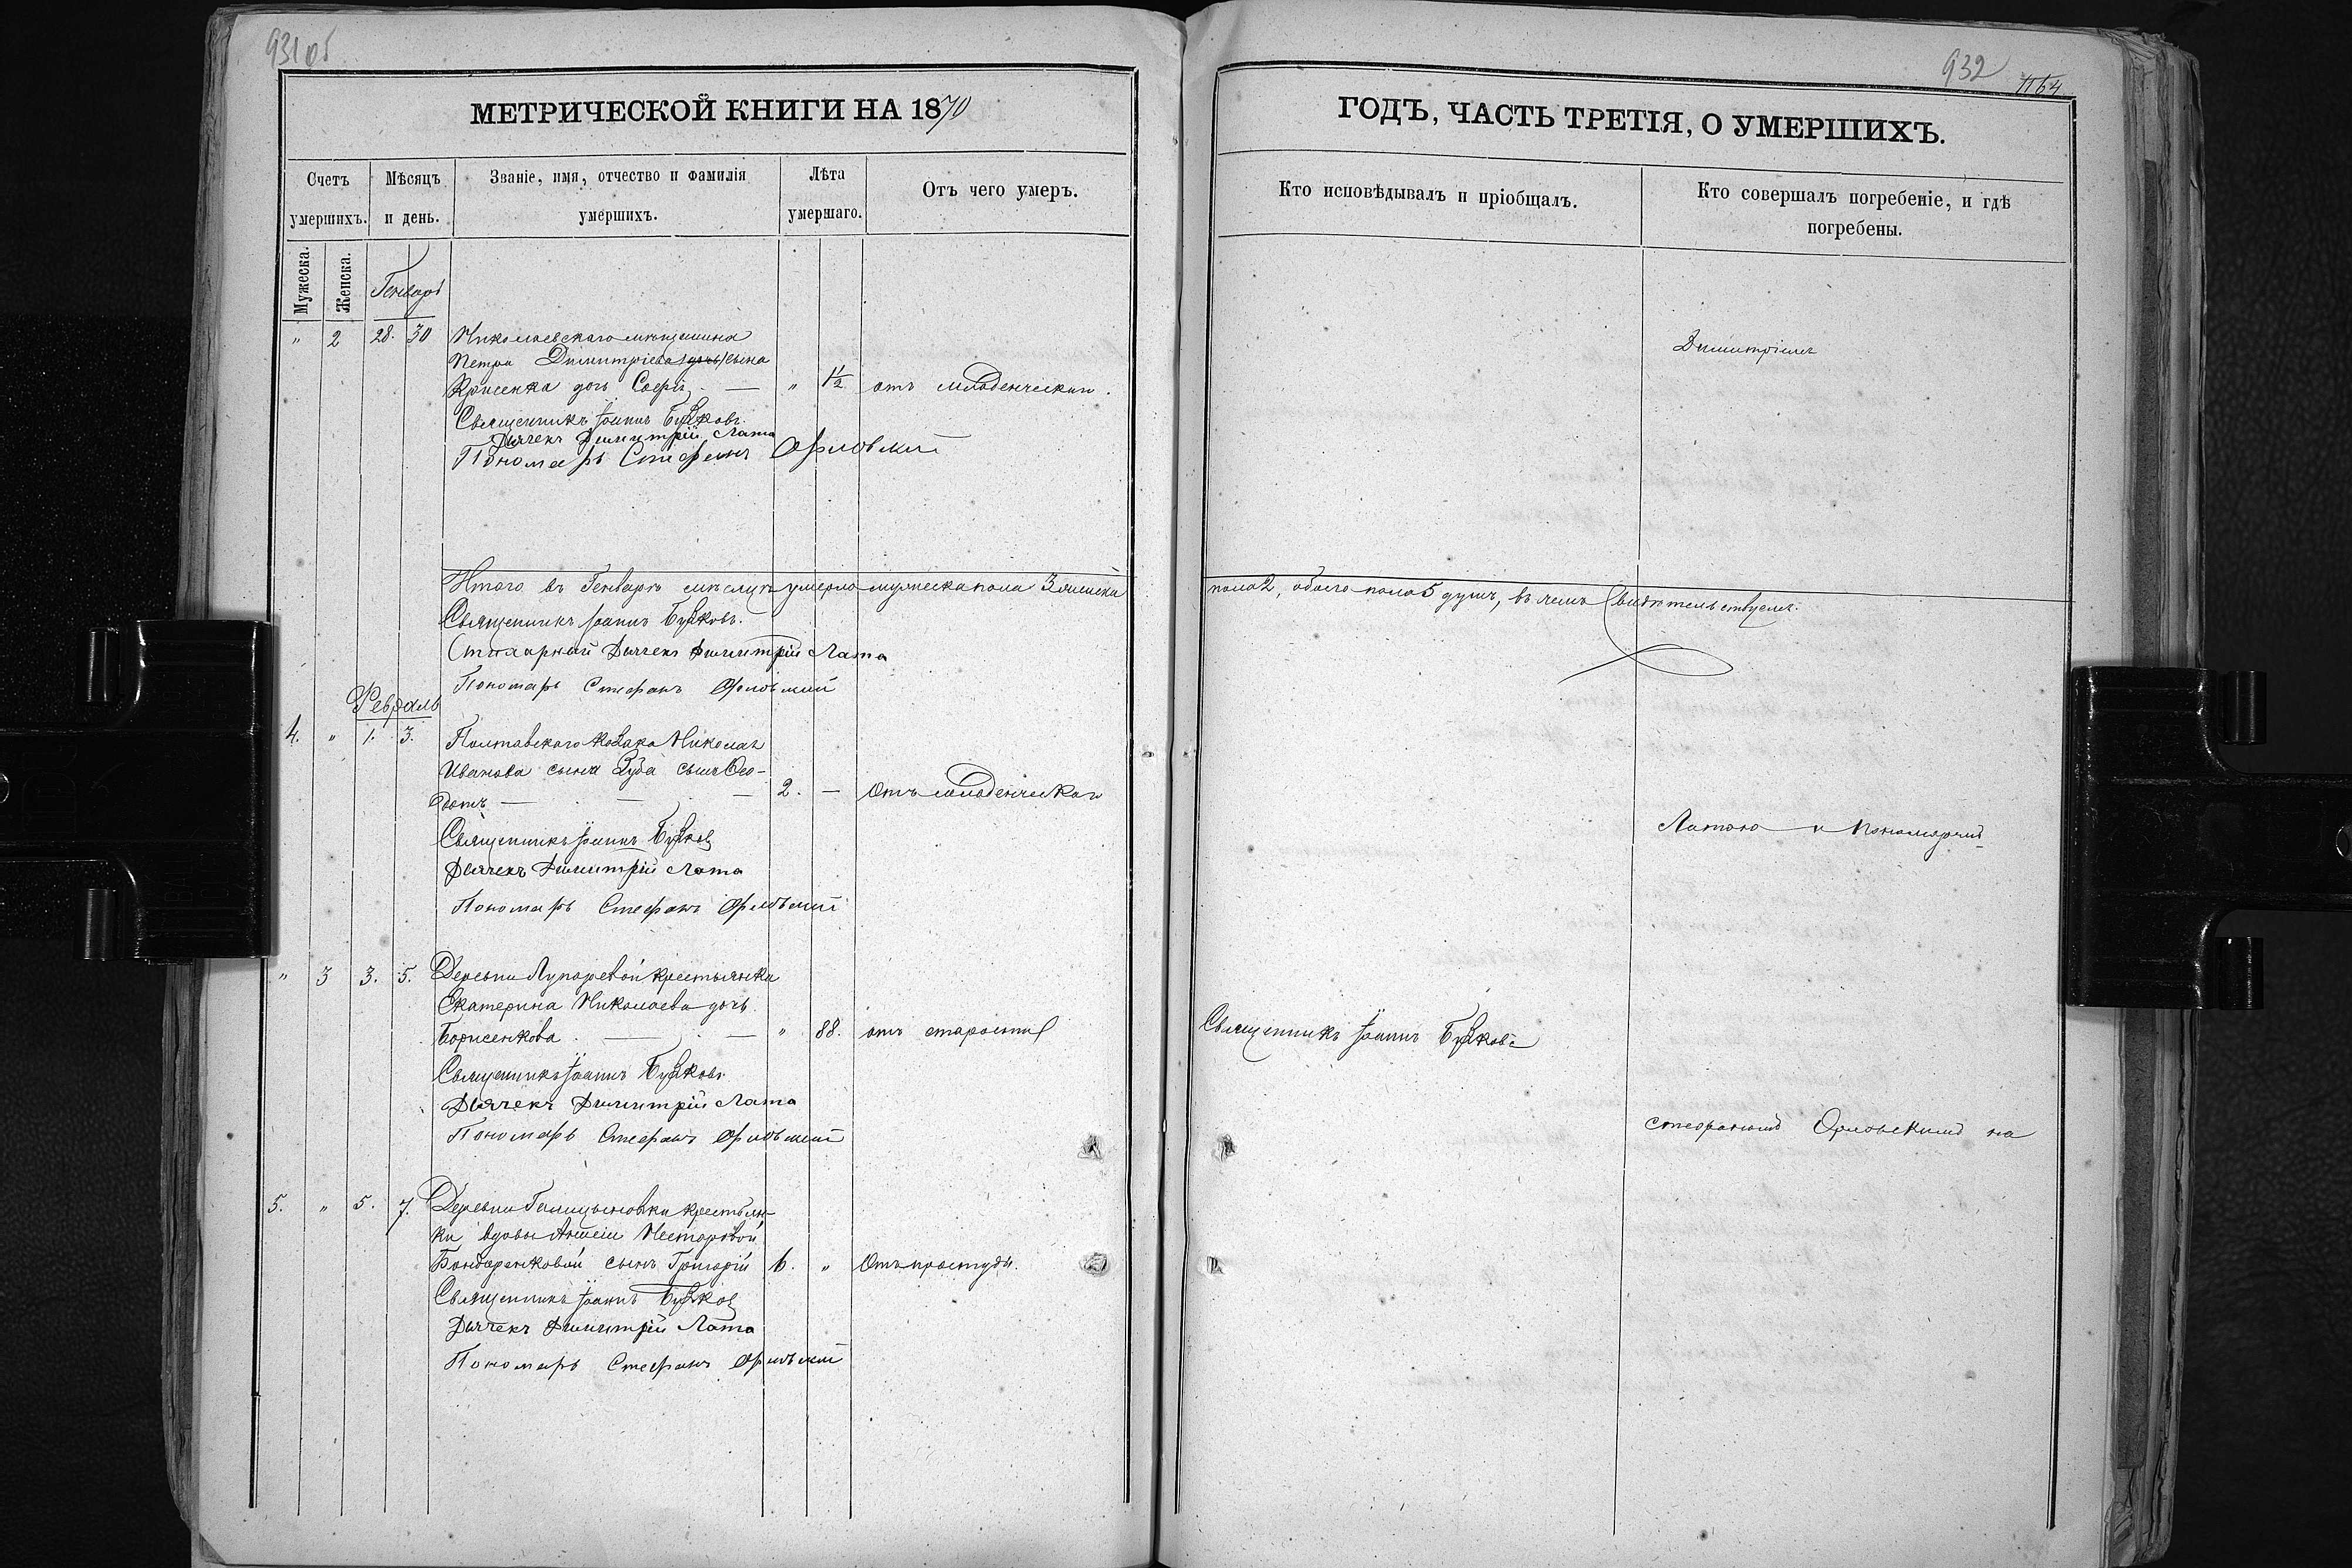 931 об
МЕТРИЧЕСКОЙ КНИГИ НА 1870
Счетъ умершихъ.
Мѣсяцъ и день.
Званіе, имя, отчество и фамилія умершихъ.
Лѣта умершаго.
Отъ чего умеръ.
Мужеска.
Женска.
Генварь
" 2 28. 30 Николаевскаго мѣщанина
Петра Димитріева сына
дочь Софія — " 1 1/2 отъ младенческаго.
Священникъ Іоаннъ
Дьячекъ Димитрій Лата
Пономарь Стефанъ Орловскій
Итого въ Генварѣ мѣсяцѣ умерло мужеска пола 3 женска
Священникъ Іоаннъ
Стихарный Дьячекъ Димитрій Лата
Пономарь Стефанъ Орловскій
Февраль
4. " 1. 3. Полтавскаго козака Николая
Иванова сына Зуба сынъ Ѳео-
дотъ — 2. — Отъ младенческаго
Священникъ Іоаннъ
Дьячекъ Димитрій Лата
Пономарь Стефанъ Орловскій
" 3 3. 5. Деревни Лупаревой крестьянка
Екатерина Николаева дочь
Борисенкова — " 88. отъ старости
Священникъ Іоаннъ
Дьячекъ Димитрій Лата
Пономарь Стефанъ Орловскій
5. " 5. 7. Деревни Галицыновки крестьян-
ки вдовы Несторовой
Бондаренковой сынъ Григорій 6. " Отъ простуды.
Священникъ Іоаннъ
Дьячекъ Димитрій Лата
Пономарь Стефанъ Орловскій
932
1164
ГОДЪ, ЧАСТЬ ТРЕТІЯ, О УМЕРШИХЪ.
Кто исповѣдывалъ и пріобщалъ.
Кто совершалъ погребеніе, и гдѣ погребены.
Димитріемъ
пола 2, обоего пола 5 душъ, въ чемъ свидѣтельствуемъ.
Латою и Пономаремъ
Священникъ Іоаннъ
Стефаномъ Орловскимъ на